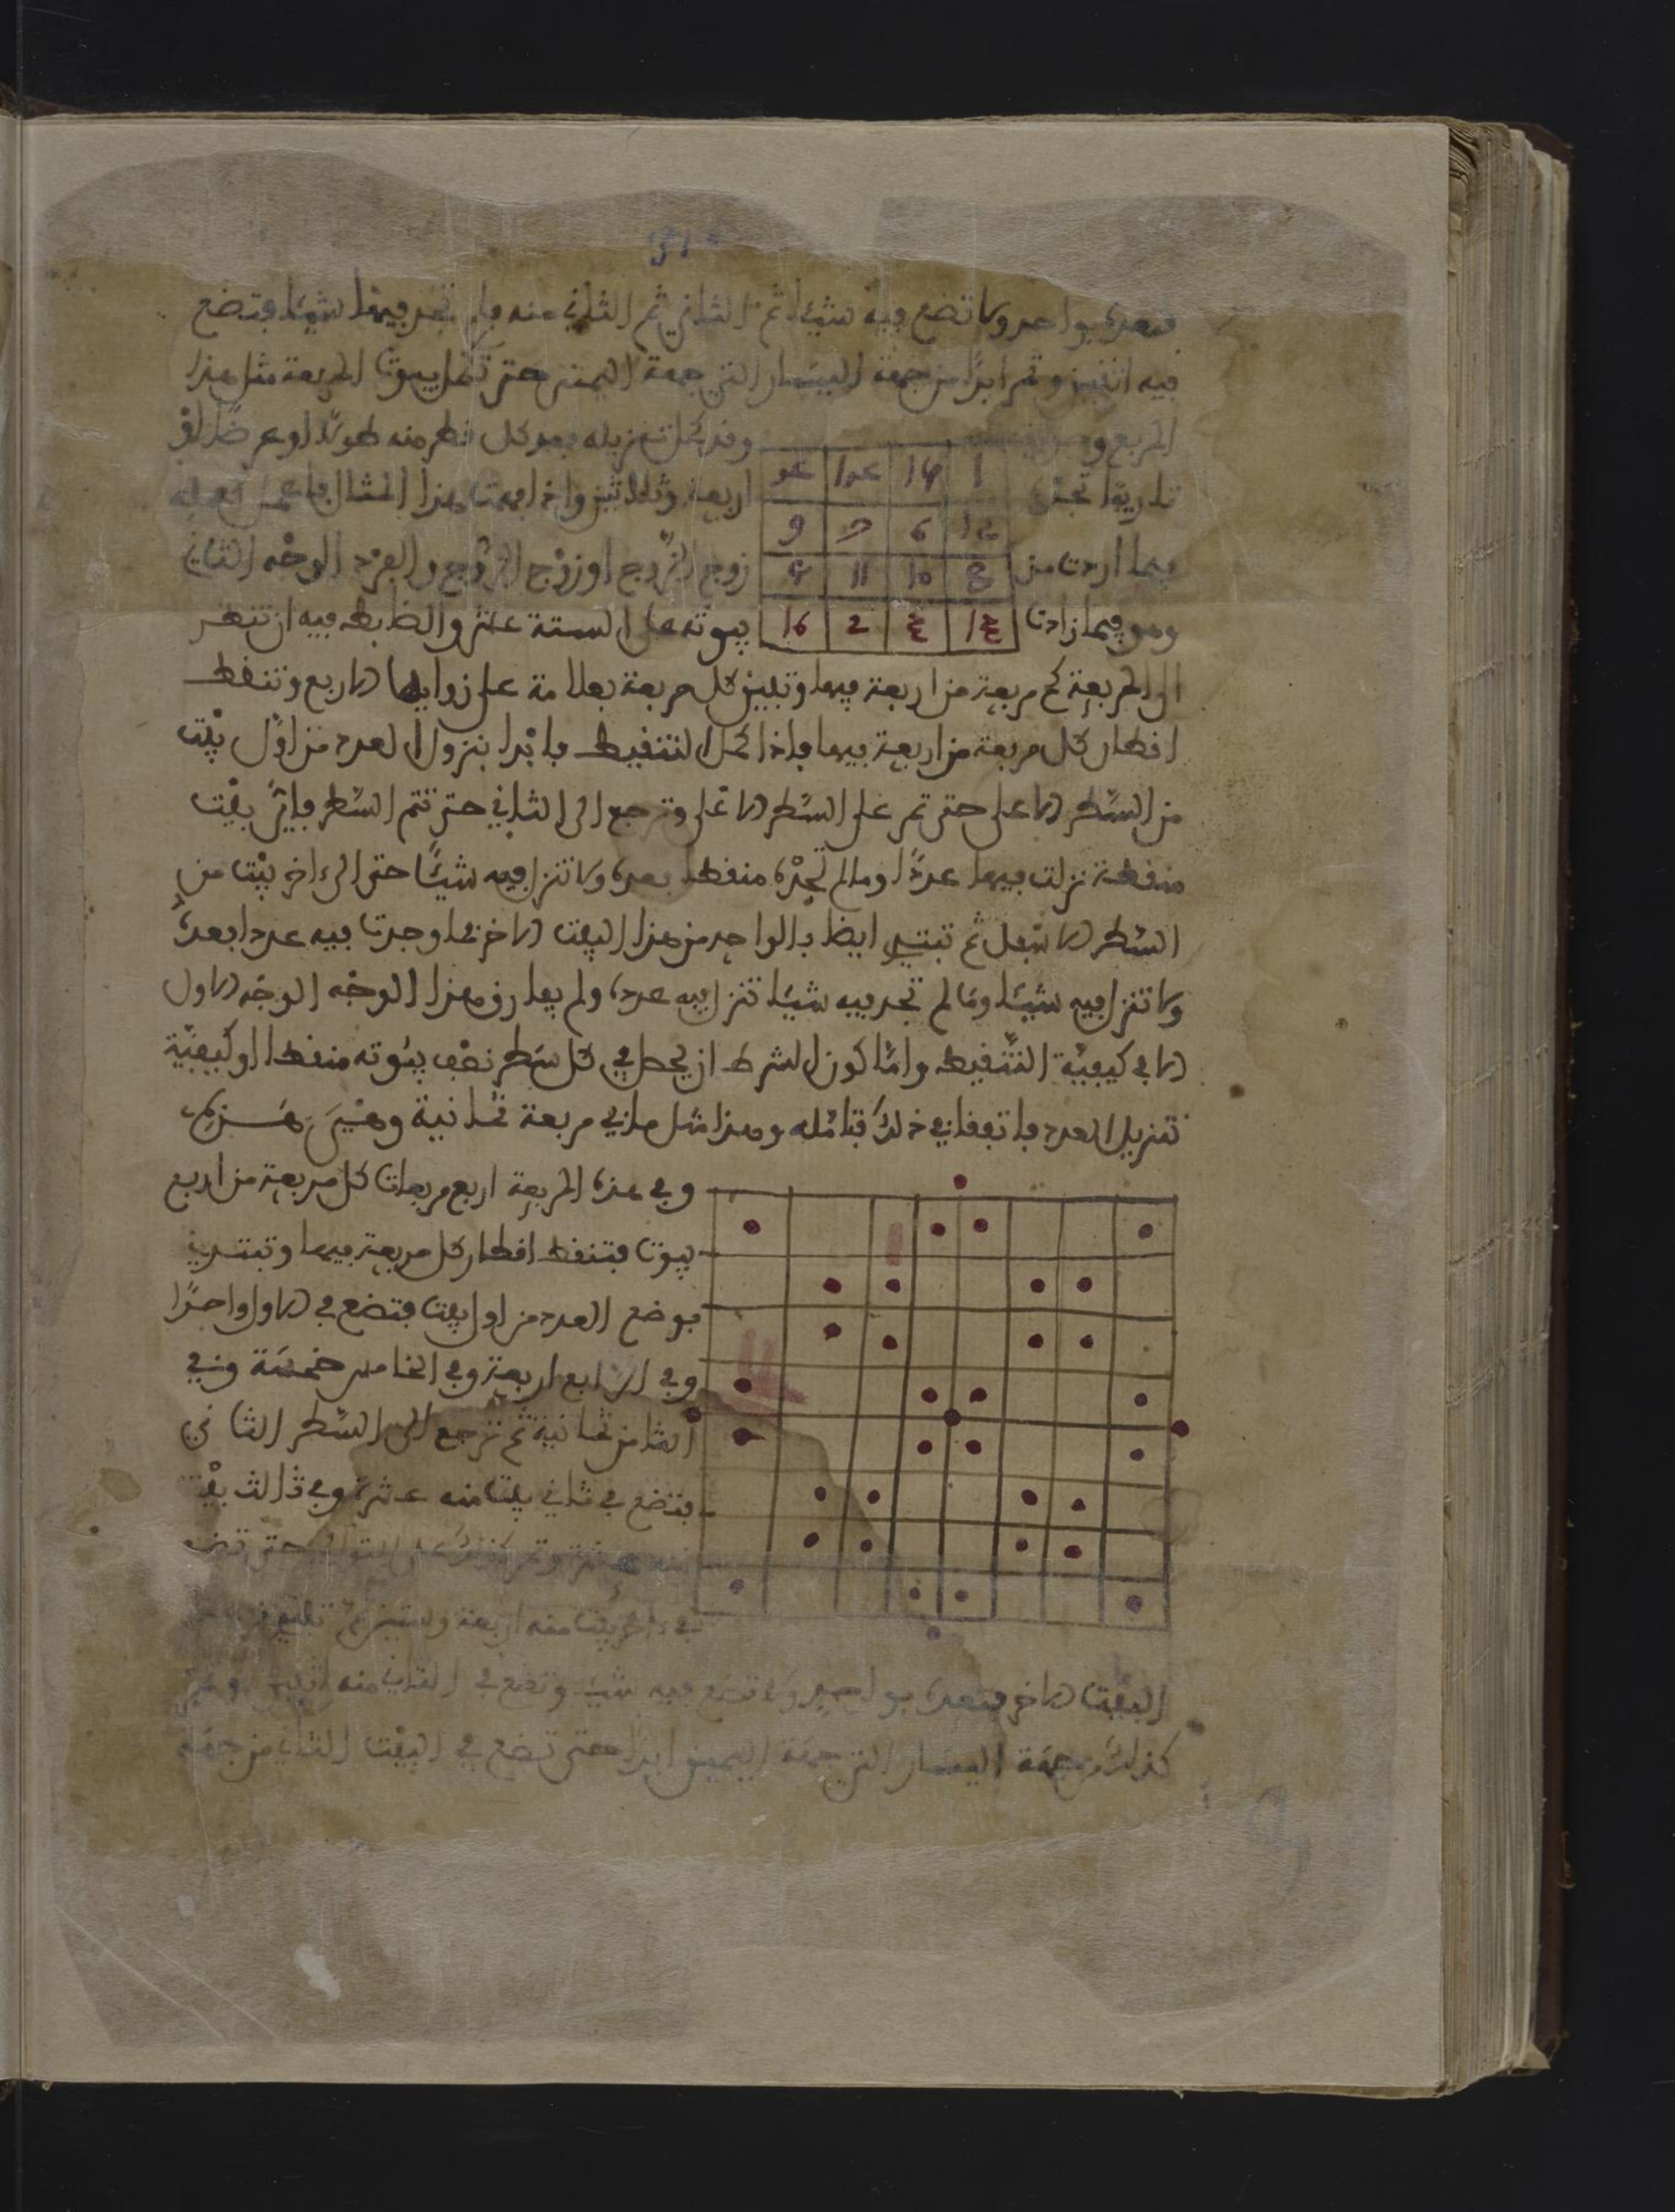 فتعده بواحد ولا تضع فيه شيئا ثم الثاني ثم الثاني منه فلم تجد فيها شيئا فتضع
فيه اثنين وتمر ابدا من جهة اليسار الى جهة اليمنى حتى تكمل بيوت المربعة مثل هذا
المربع
وقد كمل تنزيله بعد كل قطر منه طولا او عرضا
اربعة وثلاثين واذا فهمت هذا المثال فاعمل
فيما اردت من
زوج الزوج او زوج الزوج والفرد الوجه الثاني
وهو فيما زادت
بيوته على الستة عشر والضابط فيه ان تنظر
الى المربعة كم مربعة من اربعة فيها وتبين كل مربعة بعلامة على زواياها الاربع وتنقط
اقطار كل مربعة من اربعة فيها فاذا كمل التنقيط فابدا بنزول العدد من اول بيت
من السطر الاعلى حتى تمر على السطر الاعلى وترجع الى الثاني حتى تتم السطر فاي بيت
منقطة نزلت فيها عددا وما لم تجده منقطا بعده ولا تنزل فيه شيئا حتى الى ءاخر بيت من
السطر الاسفل ثم تبتدي ايضا بالواحد من هذا البيت الاخر فما وجدت فيه عددا بعده
ولا تنزل فيه شيئا وما لم تجد فيه شيئا تنزل فيه عدده ولم يفارق هذا الوجه الوجه الاول
الا في كيفية التنقيط واما كون الشرط ان يحصل في كل سطر نصف بيوته منقطا او كيفية
تنزيل العدد فاتفقا في ذلك فتامله وهذا مثل ما في مربعة ثمانية وهي هذه
1 14 ... 4
12 6 7 9
8 10 11 5
13 3 2 16
وفي هذه المربعة اربع مربعات كل مربعة من اربع
بيوت فتنقط اقطار كل مربعة فيها وتبتدي
بوضع العدد من اول بيت فتضع في الاول واحدا
وفي الرابع اربعة وفي الخامس خمسة وفي
الثامن ثمانية ثم ترجع الى السطر الثاني
فتضع في ثاني بيت منه عشرة وفي ثالث بيت
في ءاخر بيت منه اربعة وستين ثم
البيت الاخر فتعده بواحد ولا تضع فيه شيئا وتضع في الثاني منه اثنين
كذلك من جهة اليسار الى جهة اليمين ابدا حتى تضع في البيت الثاني من جهة